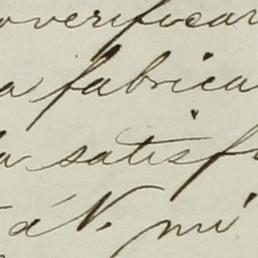 verificar
a fabrica
la satisf
á V. mi